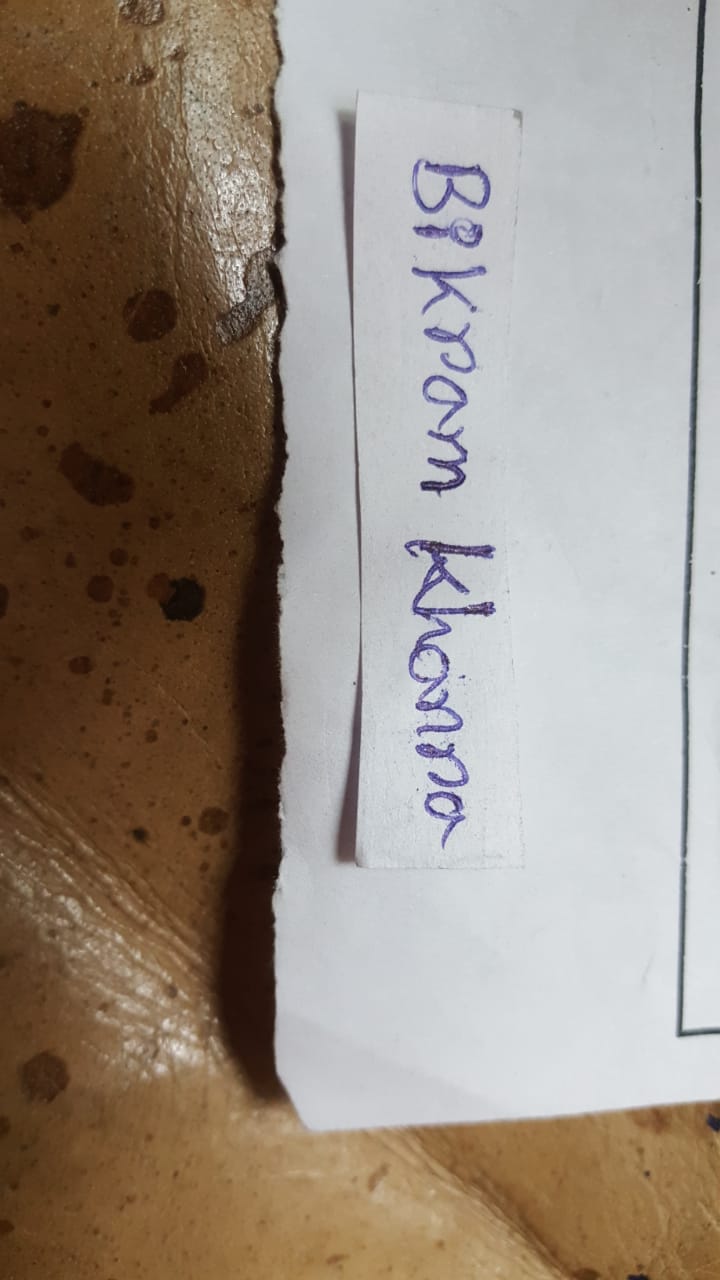 Bikram Khanra